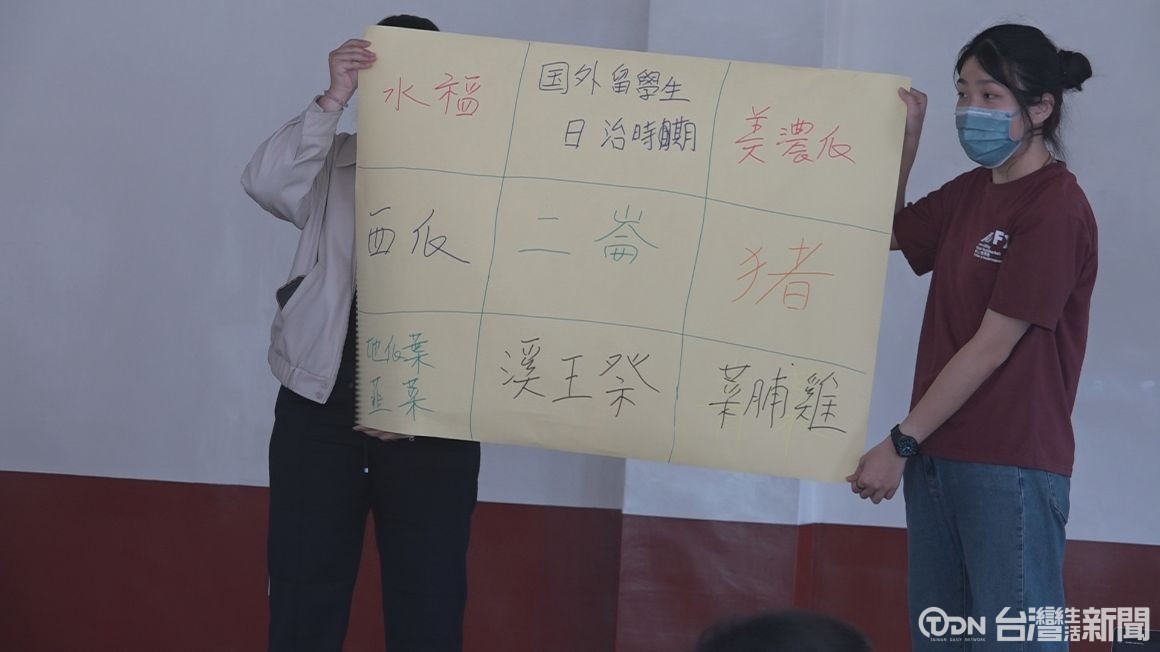 水福
国外留學生
日治時期
美濃瓜
西瓜
二崙
猪
地瓜葉
韭菜
溪王祭
菜脯雞
TDN 台灣生活新聞
TAIWAN DAILY NETWORK